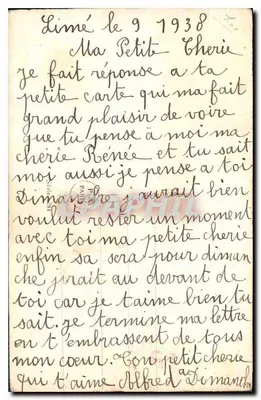 Limé le 9 1938
Ma Petit Cherie
Je fait réponse a ta
petite carte qui ma fait
grand plaisir de voire
que tu pense à moi ma
cherie Rénée et tu sait
moi aussi je pense a toi
Dimanche j aurait bien
voulut rester un moment
avec toi ma petite cherie
enfin sa sera pour diman
che jirait au devant de
toi car je taime bien tu
sait. je termine ma lettre
en t'embrassent de tous
mon cœur. Ton petit cherie
qui t'aime Alfred Dimanche